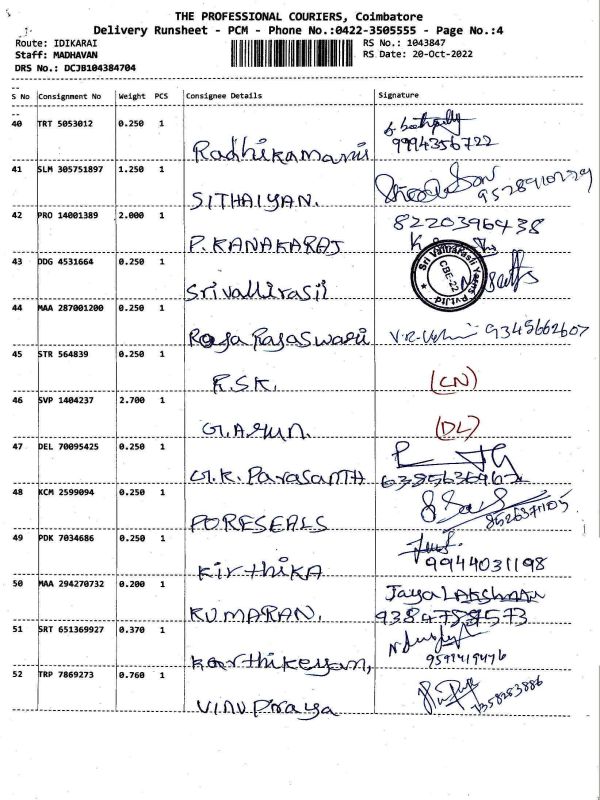 THE PROFESSIONAL COURIERS, Coimbatore
Delivery Runsheet - PCM - Phone No.:0422-3505555 - Page No.:4
Route: IDIKARAI RS No.: 1043847
Staff: MADHAVAN RS Date: 20-Oct-2022
DRS No.: DCJB104384704
S No Consignment No Weight PCS Consignee Details Signature
40 TRT 5053012 0.250 1
Radhikamani 9994356722
41 SLM 305751897 1.250 1
SITHAIYAN.
42 PRO 14001389 2.000 1 8220396438
P. KANAKARAJ
43 DDG 4531664 0.250 1 Sri Vallirasi Yarns Pvt Ltd CBE-22
Srivallirasi
44 MAA 287001200 0.250 1
Roja Rajaswari 9345662607
45 STR 564839 0.250 1
R.S.K. (CN)
46 SVP 1404237 2.700 1
G. Arun. (DL)
47 DEL 70095425 0.250 1
G.K. Parasanth
48 KCM 2599094 0.250 1
FORESEALS
49 PDK 7034686 0.250 1
KirthiKA 9944031198
50 MAA 294270732 0.200 1 Jaya LAKSHMAN
KUMARAN.
51 SRT 651369927 0.370 1
Karthikeyan,
52 TRP 7869273 0.760 1 7358283886
VINU Praya